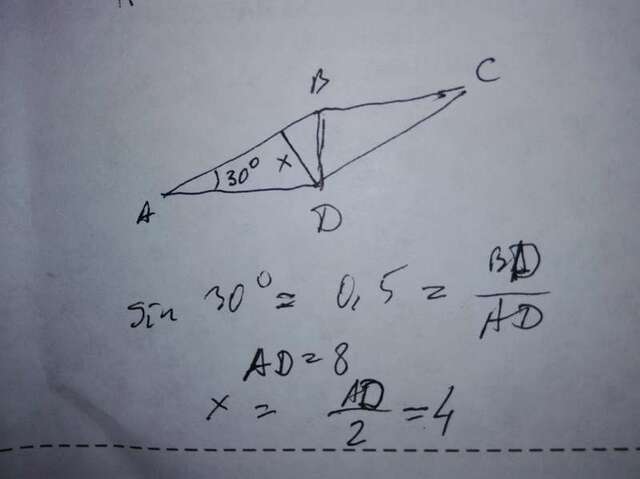 B
C
30° x
A
D
Sin 30° = 0,5 = BD / AD
AD = 8
x = AD / 2 = 4